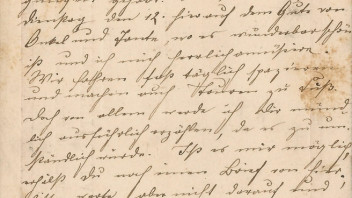 Dienstag den 12. hier auf dem Gute von
Onkel und Tante, wo es wunderbar schön
ist und ich mich herrlich amüsiere.
Wir fahren fast täglich spazieren
und machen auch Touren zu Fuß.
Doch von allem werde ich Dir münd-
lich ausführlich erzählen, da es zu um-
ständlich würde. Ist es mir möglich
erhälst du noch einen Brief von hier,
warte aber nicht darauf und